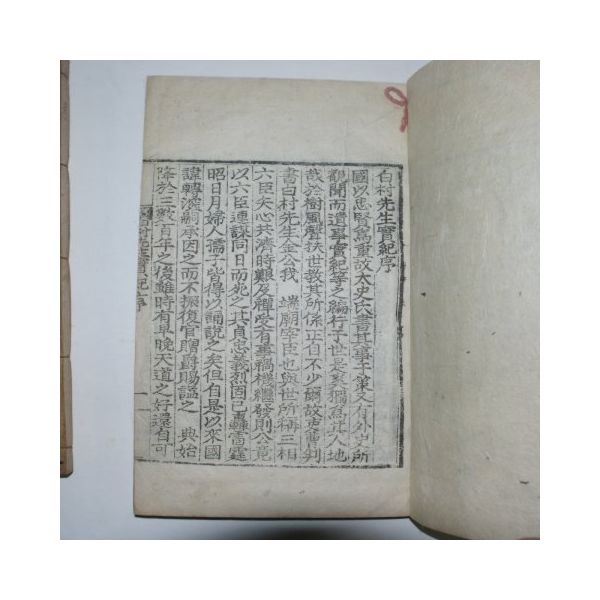 白村先生實紀序
國以忠賢爲重故太史氏書其事于策又有外史所
觀聞而遺事實紀等之編行于世是豈獨爲其人地
哉於樹風聲扶世敎其所係正自不少爾故吏曹判
書白村先生金公我 端廟宰臣也與世所稱三相
六臣矢心共濟時艱及禪受有事禍機繼發則公竟
以六臣連謀同日而死之其貞忠義烈固已轟雷霆
昭日月婦人孺子皆得以誦說之矣但自是以來國
諱轉深嗣承因之而不振復官贈爵賜謚之 典始
降於三數百年之後雖時有早晩天道之好還自可
白村先生實紀序
一